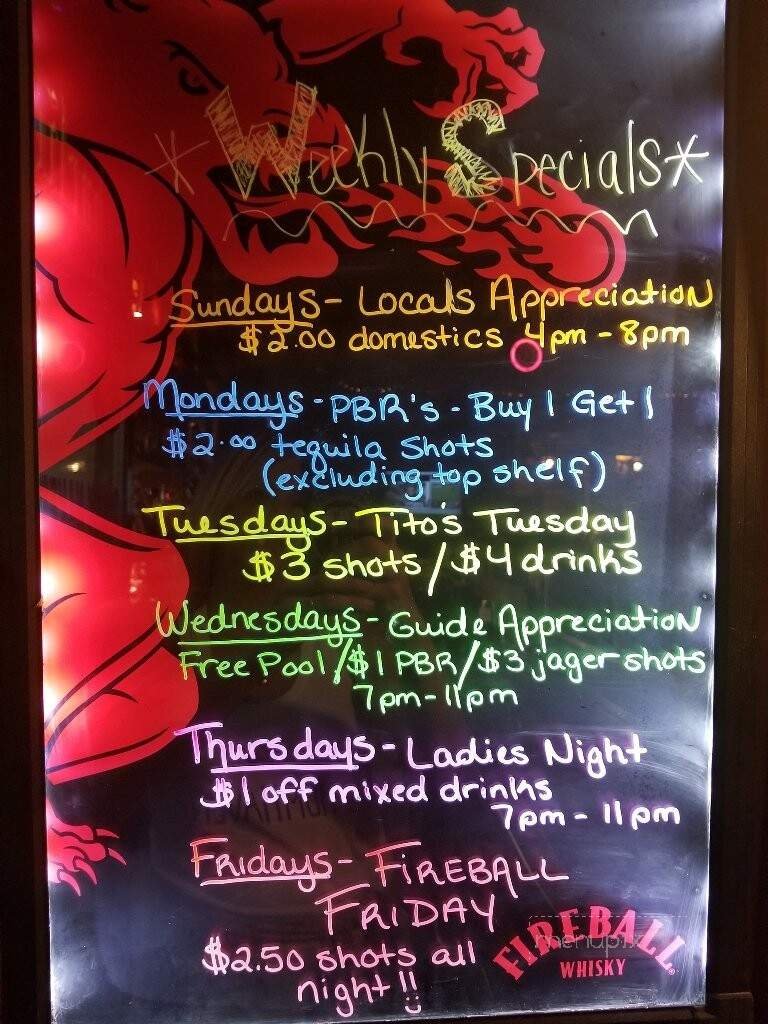 *Weekly Specials*
Sundays - Locals Appreciation
$2.00 domestics 4pm - 8pm
Mondays - PBR's - Buy 1 Get 1
$2.00 tequila shots
(excluding top shelf)
Tuesdays - Tito's Tuesday
$3 shots / $4 drinks
Wednesdays - Guide Appreciation
Free Pool / $1 PBR / $3 jager shots
7pm - 11pm
Thursdays - Ladies Night
$1 off mixed drinks
7pm - 11pm
Fridays - FIREBALL
FRIDAY
$2.50 shots all
night!!
FIREBALL®
WHISKY
menupix